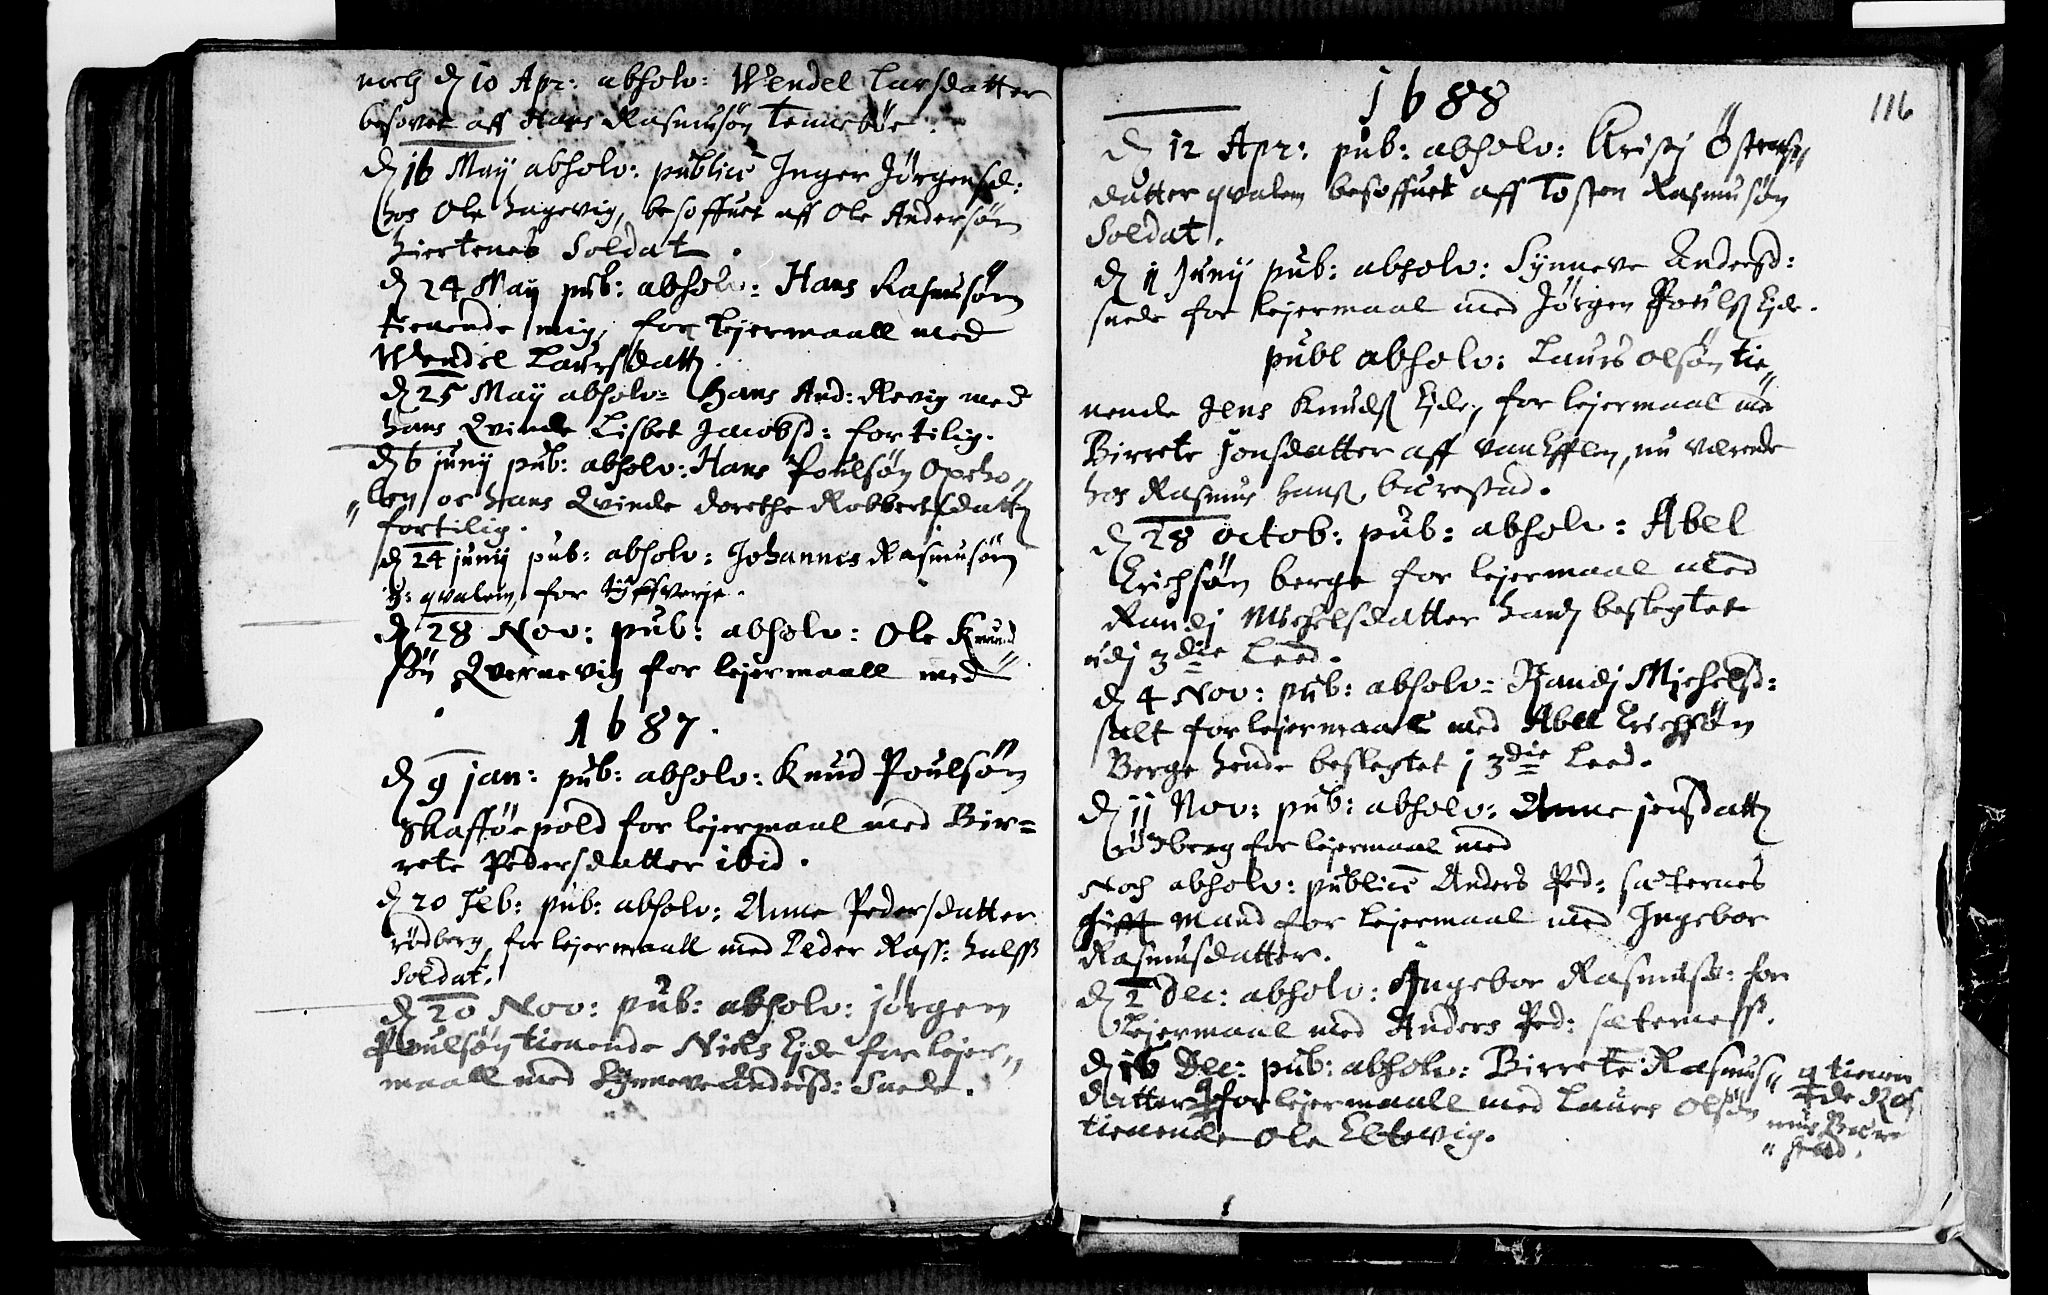 noch d. 10 Apr: absolv: Wendel Larsdatter
besovet aff Hans Rasmusøn Tennebøe.
d. 16 Maÿ absolv: publicè Inger Jørgensd:
hos Ole hagevig, besoffuet aff Ole Andersøn
hiertenes Soldat.
d. 24 Maÿ pub: absolv: Hans Rasmusøn
tienende mig, for lejermaall med
Wendel Laursdatt.
d. 25 Maÿ absolv: Hans And: Revig med
hans Qvinde Lisbet Jacobsd: for tilig.
d. 6 junÿ pub: absolv: Hans Poulsøn Opsho„
„len oc hans Qvinde dorethe Robbertsdatt
fortilig.
d. 24 junÿ pub: absolv: Johannes Rasmusøn
qvalem, for
d. 28 Nov: pub: absolv: Ole Knud„
søn Qvernevig for lejermaall med
1687.
d. 9 jan: pub: absolv: Knud Poulsøn
Skafføepold for lejermaal med Bir=
rete Pedersdatter ibid.
d. 20 Feb: pub: absolv: Anne Pedersdatter
rødberg, for lejermaall med Peder Rass: halss
Soldat.
d. 20 Nov: pub: absolv: jørgen
Poulsøn tienende Niels Eide for lejer„
maall med Sÿnneve Andersd: Suede.
1688
116
d. 12 Apr: pub: absolv: Kristj
datter qvalem besoffuet aff Tosten Rasmusøn
Soldat.
d. 11 Junÿ pub: absolv: Sÿnneve Andersd:
suede for lejermaal med Jørgen Pouls Ejde.
publ absolv: Laurs olsøn tie„
nende Jens Knuds Ejde, for lejermaal med
Birrete Jonsdatter aff, nu værende
hos Rasmus Hans, bierestad.
d. 28 octob: pub: absolv: Abel
Erichsøn berge for lejermaal med
Randj Michelsdatter hans beslegtet
udj 3die Leed.
d. 4 Nov: pub: absolv: Randj Michelsd:
salt for lejermaall med Abell Erichsøn
Berge hende beslegtet j 3die Leed.
d. 11 Nov: pub: absolv: Anne jensdatt
rødberg for lejermaal med
Noch absolv: publicè Anders Ped: sæternes
gifft Mand for lejermaal med Ingebor
Rasmusdatter.
d. 2 Dec: absolv: Ingebor Rasmusd: for
Lejermaal med Anders Ped: sæterness.
d. 16 Dec: pub: absolv: Birrete Rasmus„
datter for lejermaall med Laurs Olsøn
tienende Ole Eltevig.
tienen
de Ras
mus Biere
„stad.